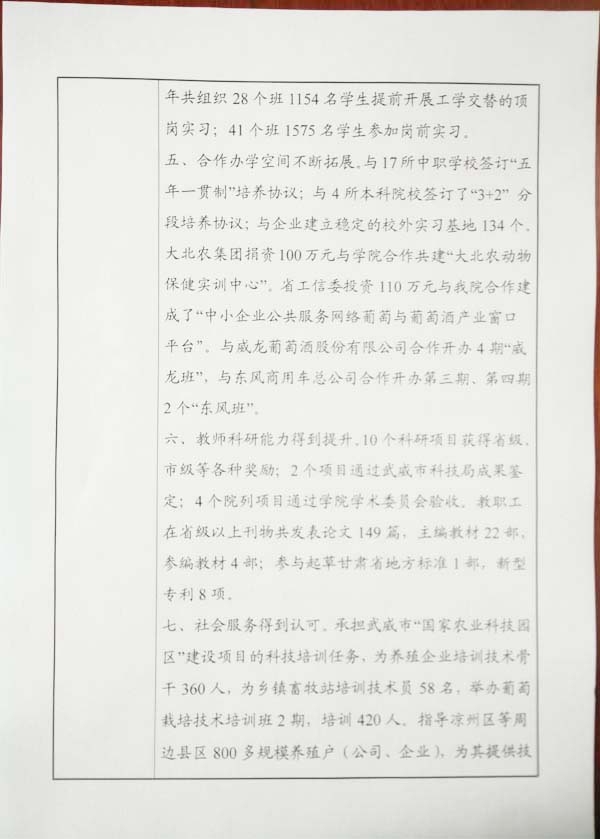 年共组织 28 个班 1154 名学生提前开展工学交替的顶
岗实习；41 个班 1575 名学生参加岗前实习。
五、合作办学空间不断拓展。与 17 所中职学校签订“五
年一贯制”培养协议；与 4 所本科院校签订了“3+2” 分
段培养协议；与企业建立稳定的校外实习基地 134 个。
大北农集团捐资 100 万元与学院合作共建“大北农动物
保健实训中心”。省工信委投资 110 万元与我院合作建
成了“中小企业公共服务网络葡萄与葡萄酒产业窗口
平台”。与威龙葡萄酒股份有限公司合作开办 4 期“威
龙班”，与东风商用车总公司合作开办第三期、第四期
2 个“东风班”。
六、教师科研能力得到提升。10 个科研项目获得省级、
市级等各种奖励；2 个项目通过武威市科技局成果鉴
定；4 个院列项目通过学院学术委员会验收。教职工
在省级以上刊物共发表论文 149 篇，主编教材 22 部，
参编教材 4 部；参与起草甘肃省地方标准 1 部，新型
专利 8 项。
七、社会服务得到认可。承担武威市“国家农业科技园
区”建设项目的科技培训任务，为养殖企业培训技术骨
干 360 人，为乡镇畜牧站培训技术员 58 名，举办葡萄
栽培技术培训班 2 期，培训 420 人。指导凉州区等周
边县区 800 多规模养殖户（公司、企业），为其提供技